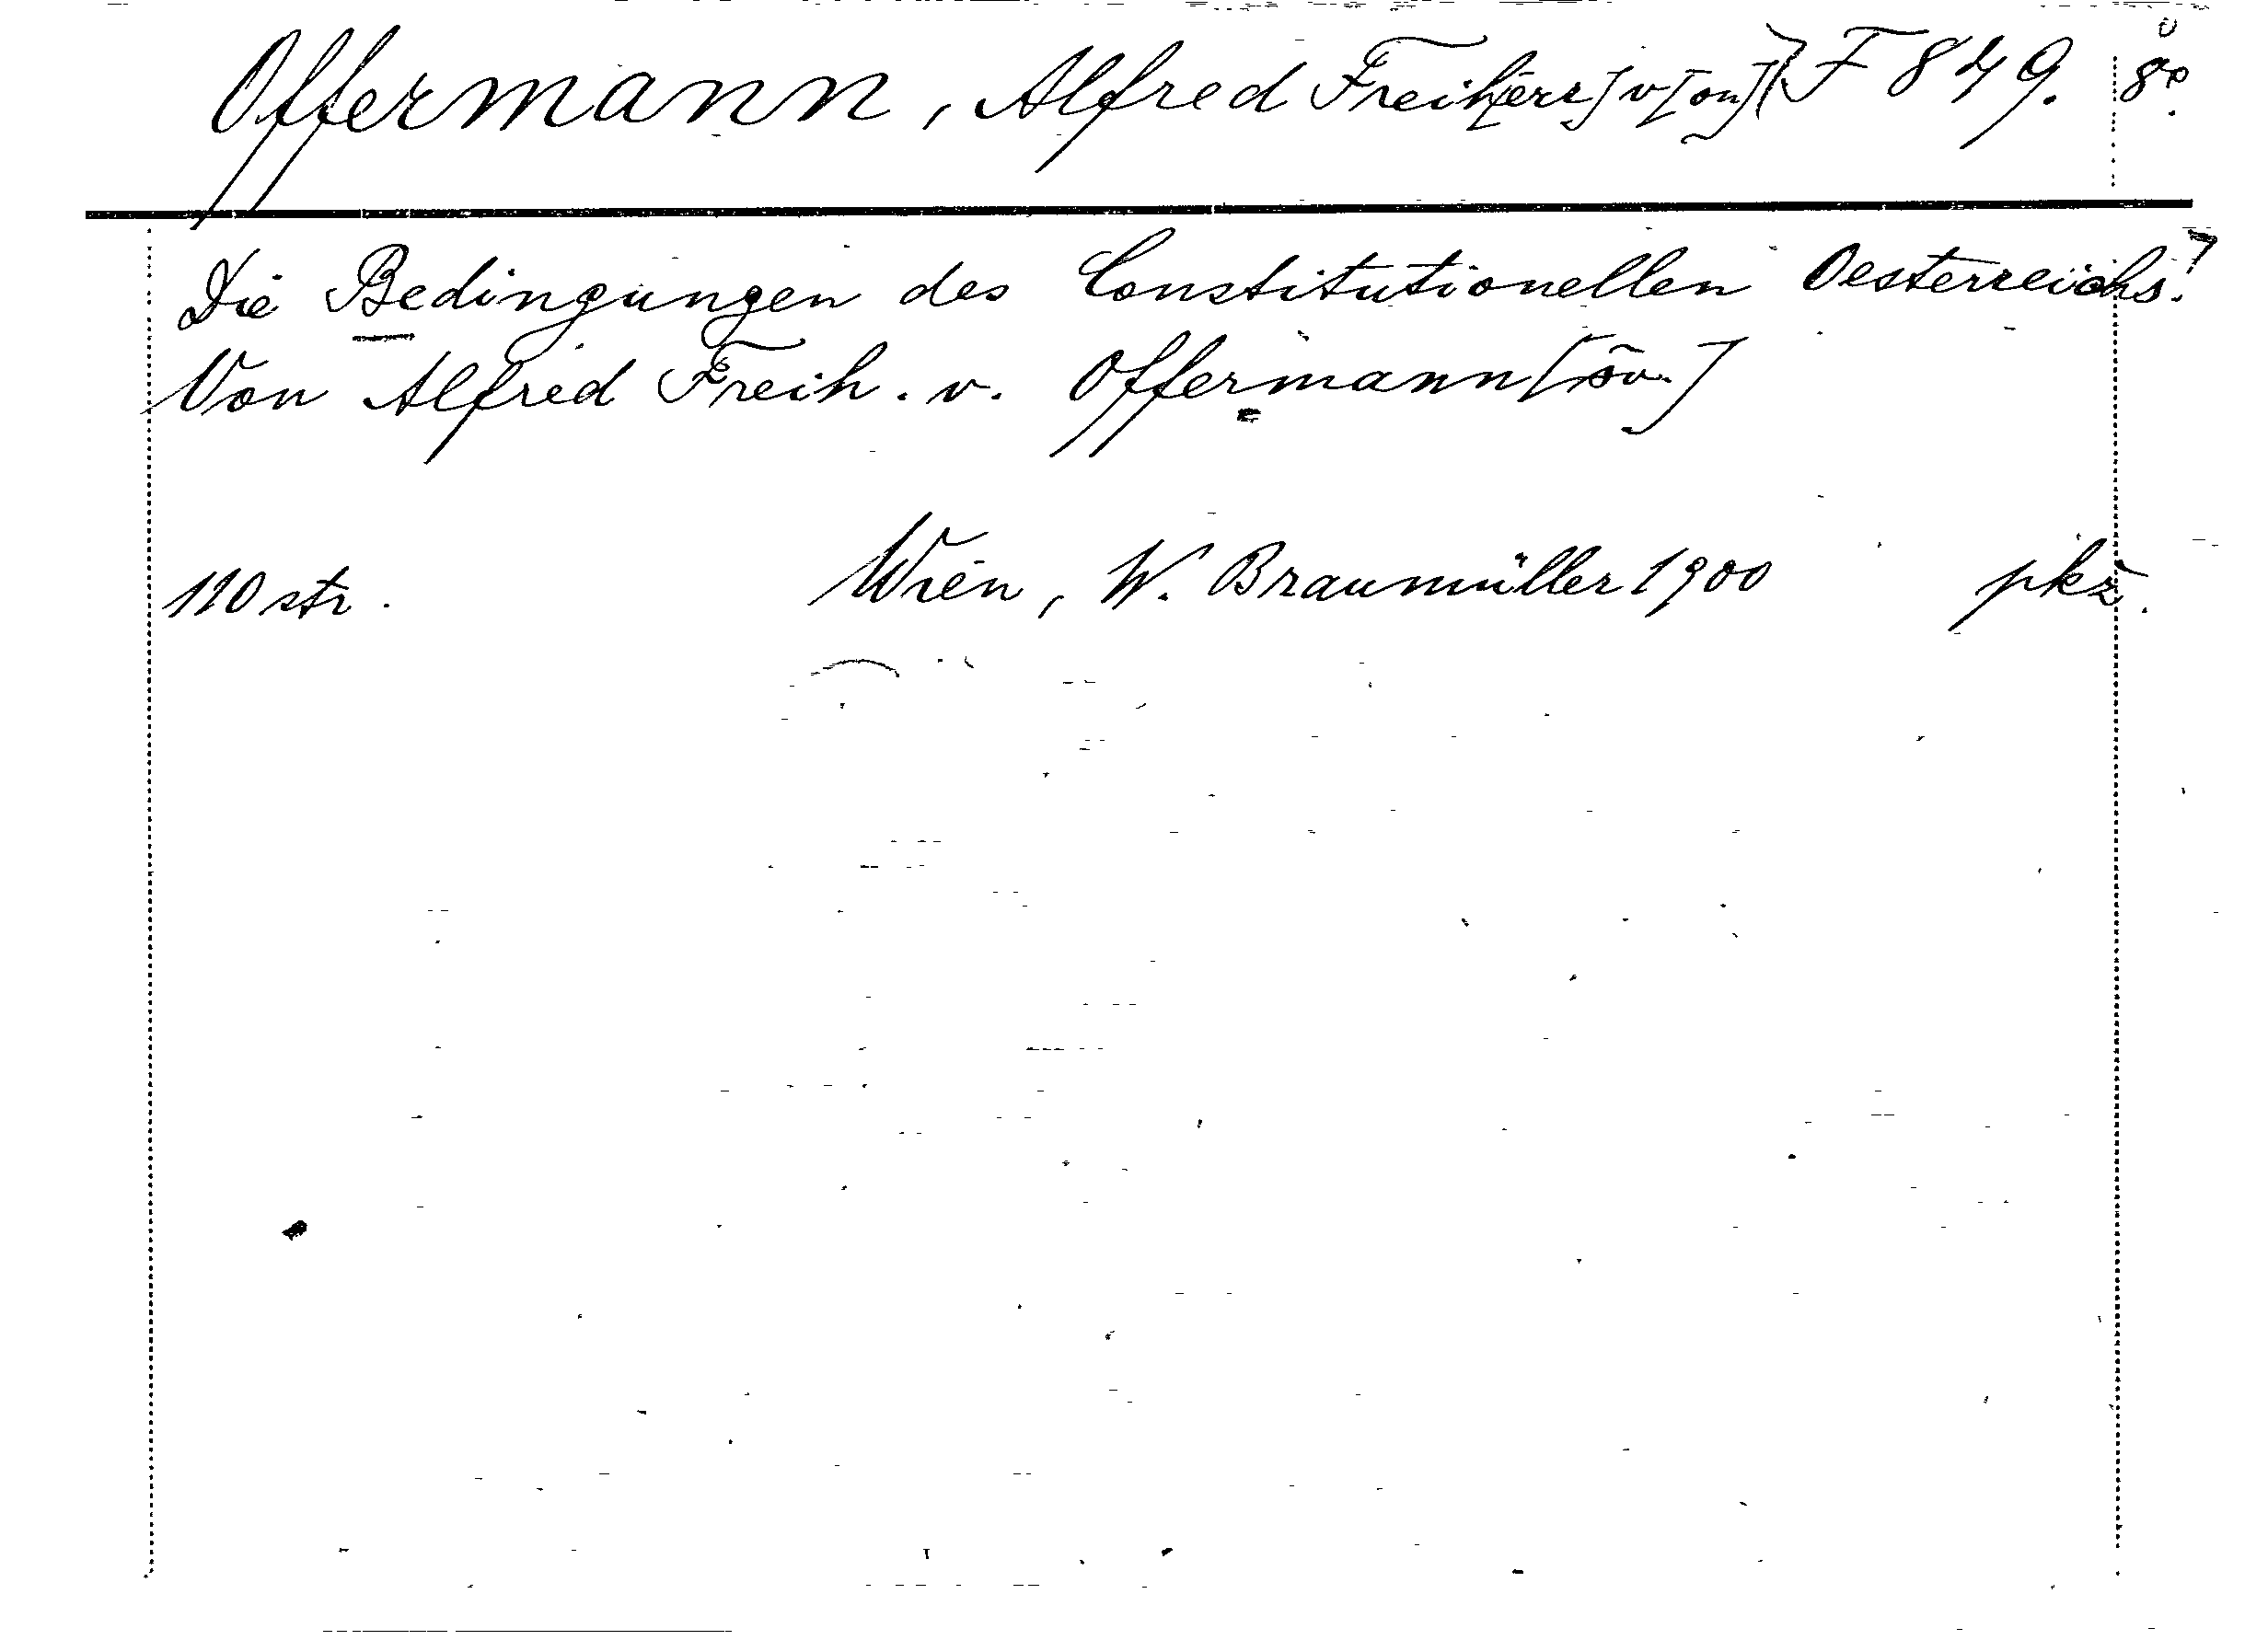 Offermann, Alfred Freih[err] v[on] F 849. 8º.
Die Bedingungen des Constitutionellen Oesterreichs.
Von Alfred Freih. v. Offermann
110 str. Wien, W. Braumüller 1900 pkž.